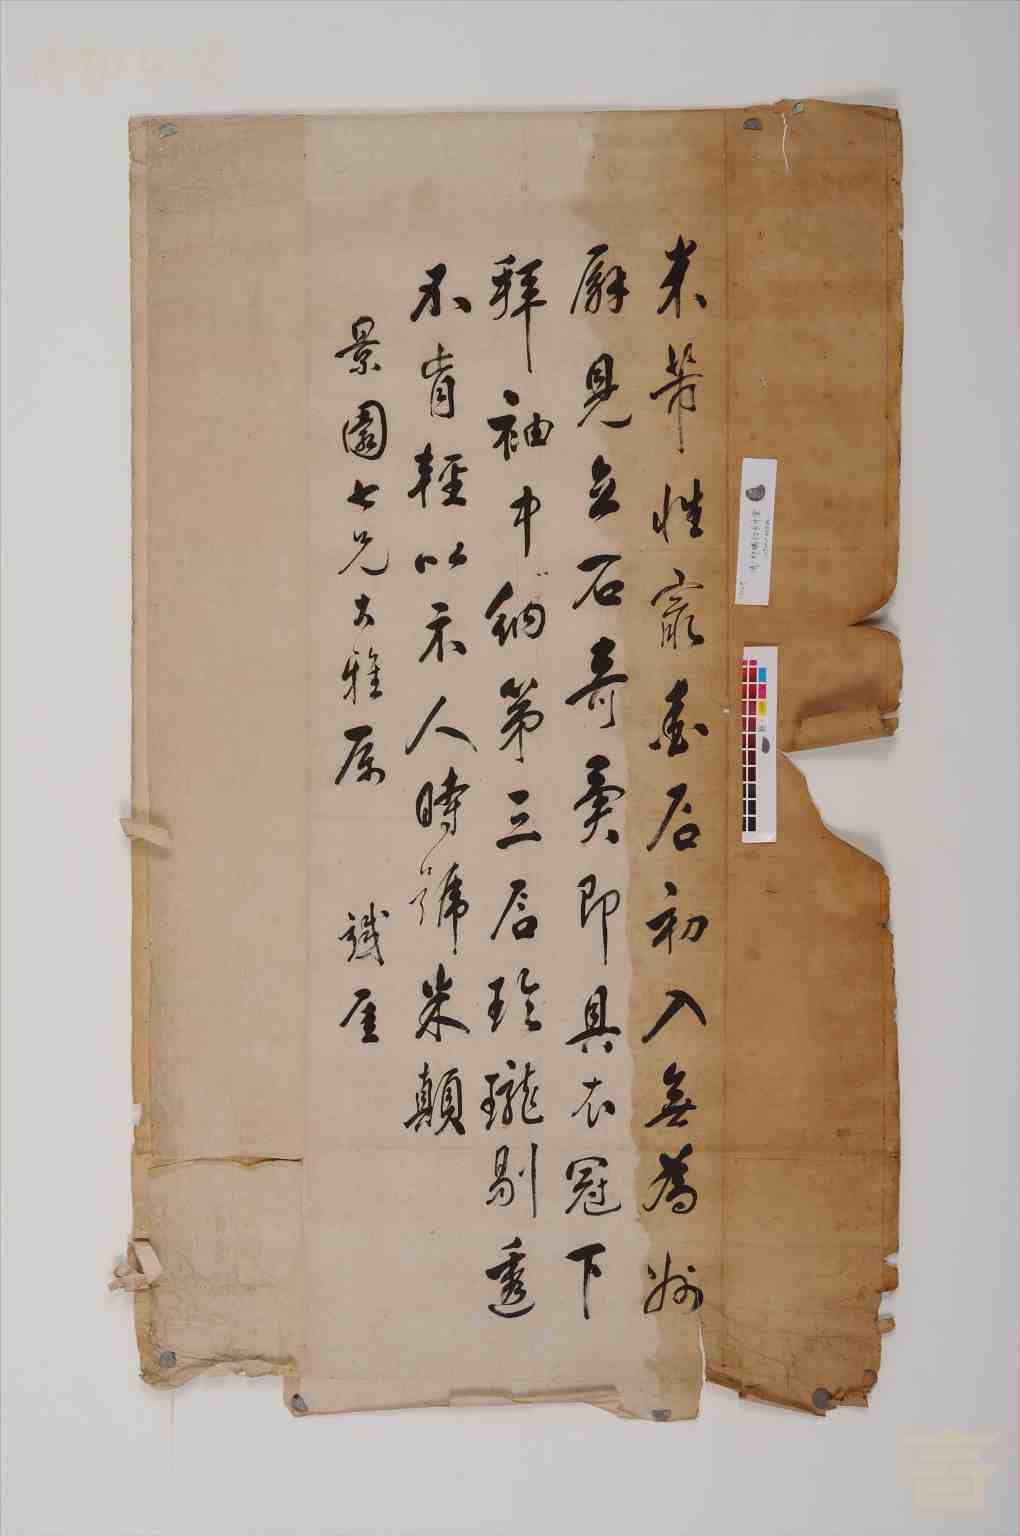 米芾性最愛石初入無為州
廨見立石奇即具衣冠下
拜袖中納第三石玲瓏剔透
不肯輕以示人時號米顛
景園七兄大雅属 厓